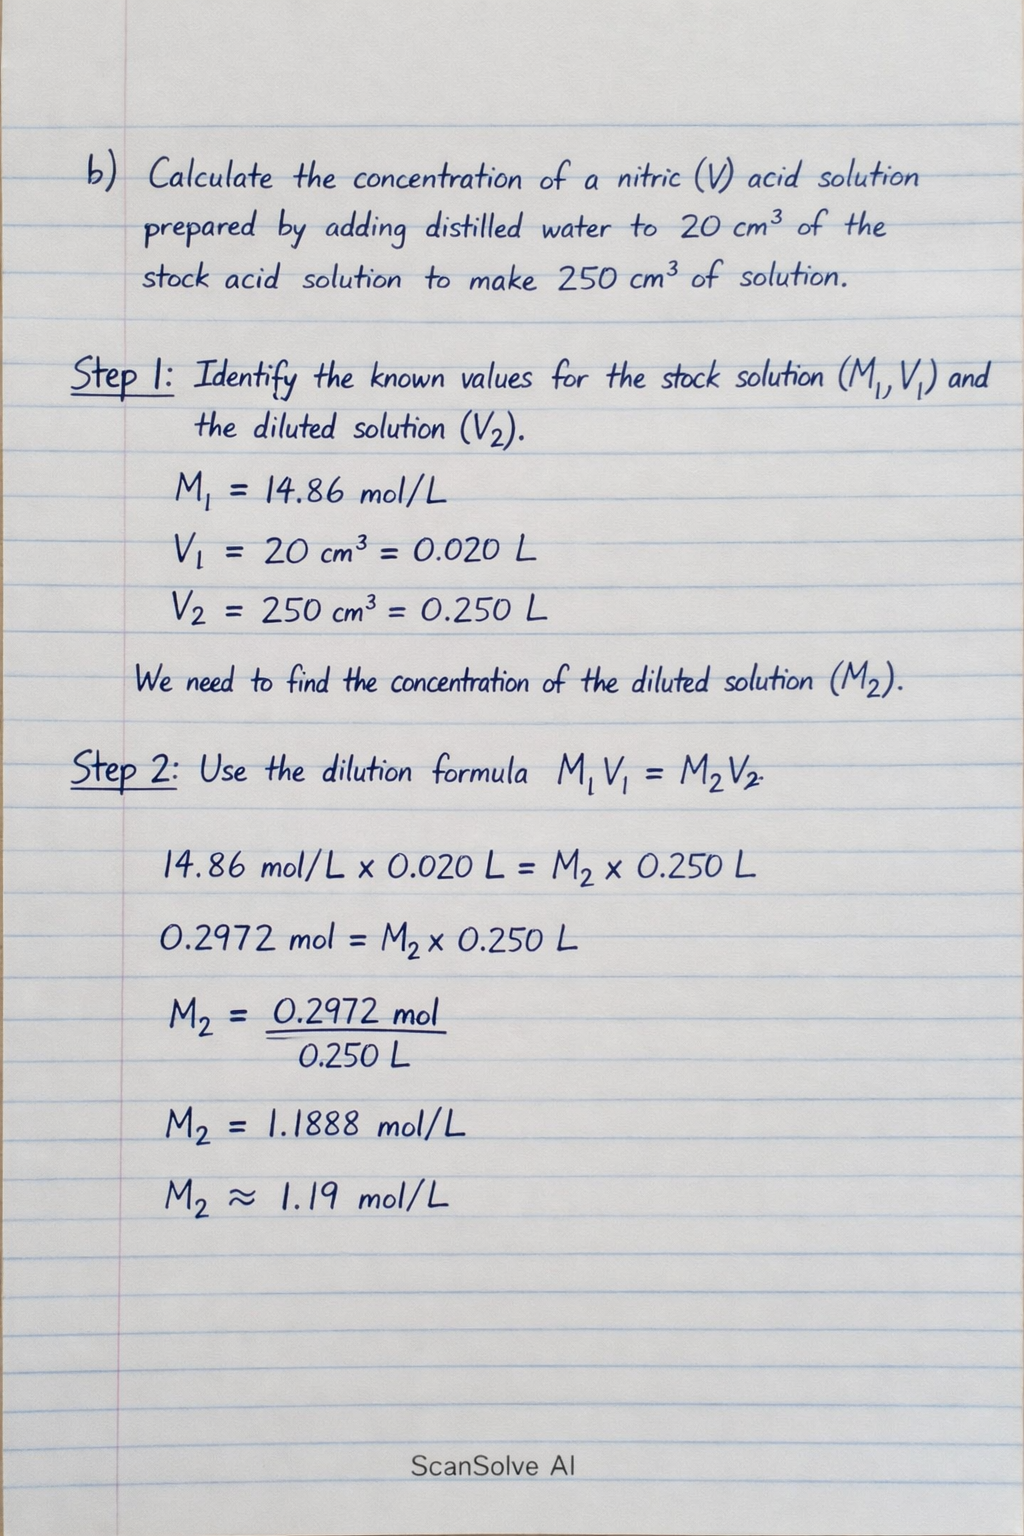 b) Calculate the concentration of a nitric (V) acid solution
prepared by adding distilled water to 20 cm³ of the
stock acid solution to make 250 cm³ of solution.
Step 1: Identify the known values for the stock solution (M₁, V₁) and
the diluted solution (V₂).
M₁ = 14.86 mol/L
V₁ = 20 cm³ = 0.020 L
V₂ = 250 cm³ = 0.250 L
We need to find the concentration of the diluted solution (M₂).
Step 2: Use the dilution formula M₁V₁ = M₂V₂.
14.86 mol/L x 0.020 L = M₂ x 0.250 L
0.2972 mol = M₂ x 0.250 L
M₂ = 0.2972 mol
0.250 L
M₂ = 1.1888 mol/L
M₂ ≈ 1.19 mol/L
ScanSolve AI